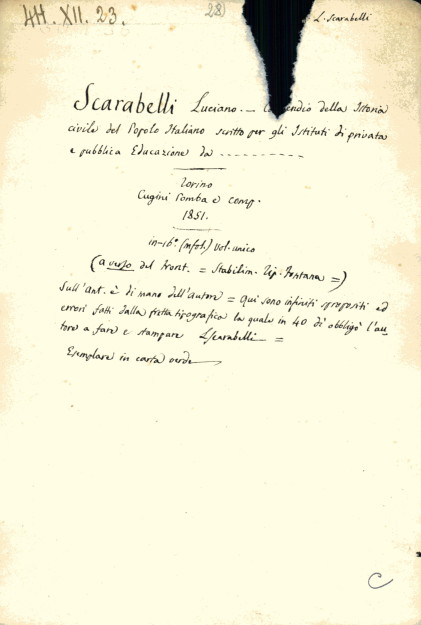 HH. XII. 23.
28)
L. Scarabelli
Scarabelli Luciano. — Co endio della Istoria
civile del Popolo Italiano scritto per gli Istituti di privata
e pubblica Educazione da ----------
Torino
Cugini Pomba e comp.
1851.
in-16° (mfol.) vol. unico
(a verso del front. = Stabilim. Tip. Fontana =)
Sull'ant. è di mano dell'autore = Qui sono infiniti spropositi ed
errori fatti dalla fretta tipografica la quale in 40 dì obbligò l'au
tore a fare e stampare LScarabelli =
Esemplare in carta verde
C